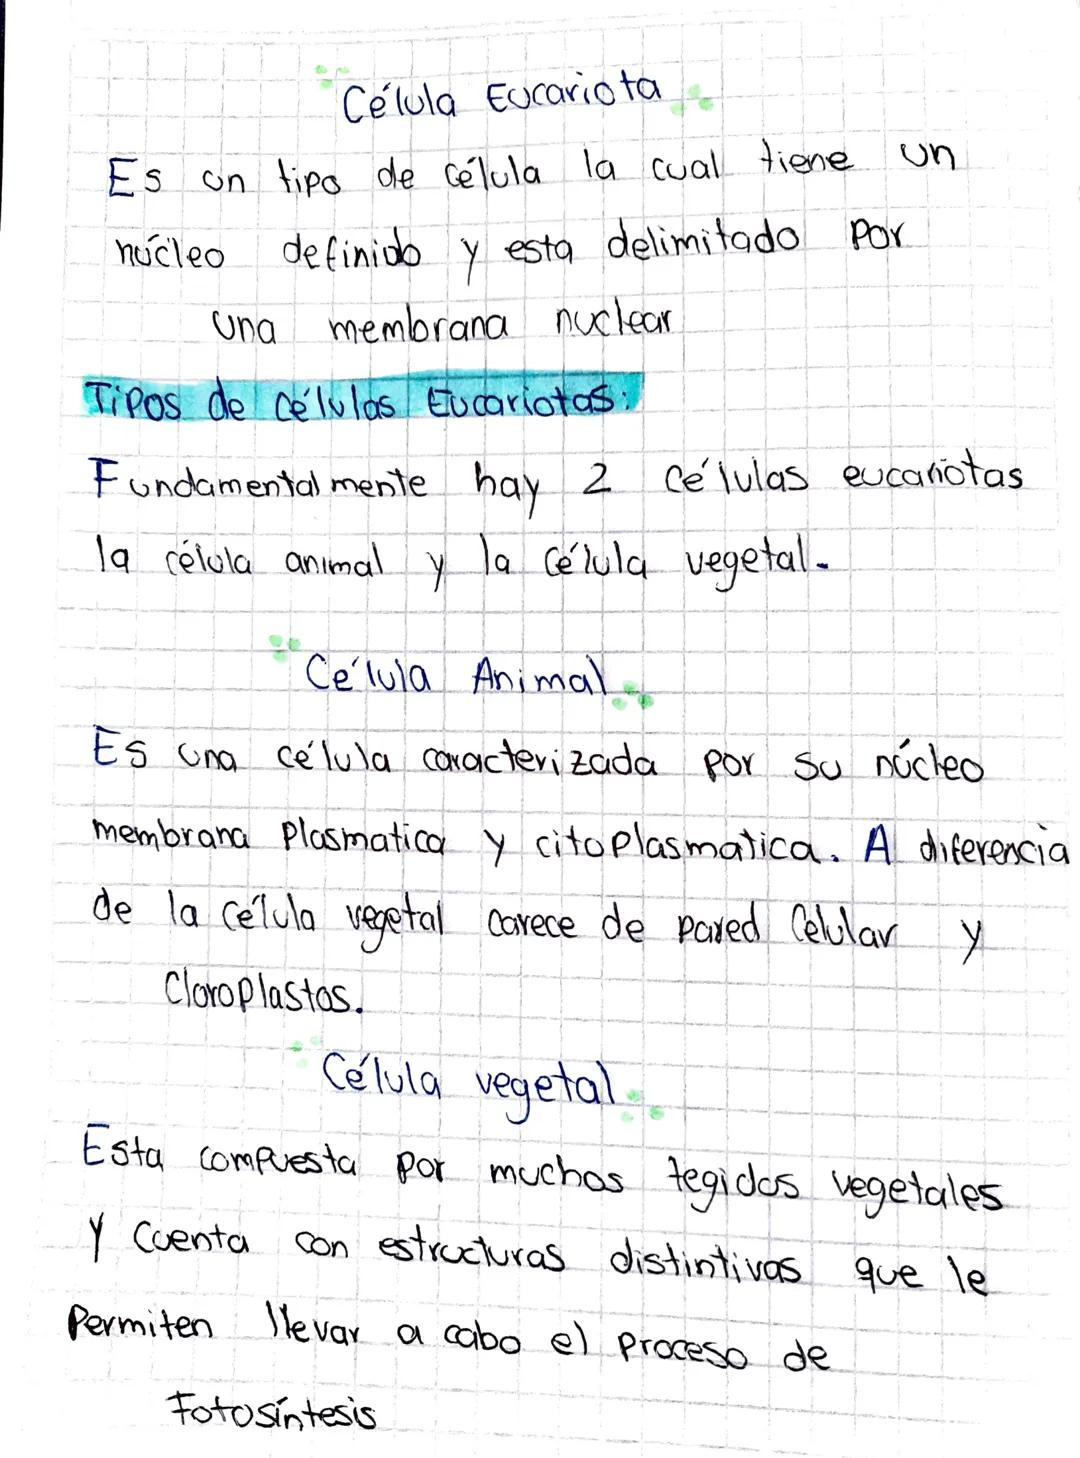 Célula Eucariota
Es un tipo de célula la cual tiene un
núcleo definido y esta delimitado Por
una membrana nuclear
Tipos de células Eucariotas:
Fundamentalmente hay 2 células eucariotas
la célula animal y la célula vegetal.
Célula Animal
Es una célula caracterizada por su núcleo
membrana Plasmatica y citoplasmatica. A diferencia
de la célula vegetal carece de pared Celular y
Cloroplastos.
Célula vegetal
Esta compuesta por muchos tegidos vegetales
Y Cuenta con estructuras distintivas que le
Permiten llevar a cabo el proceso de
Fotosíntesis